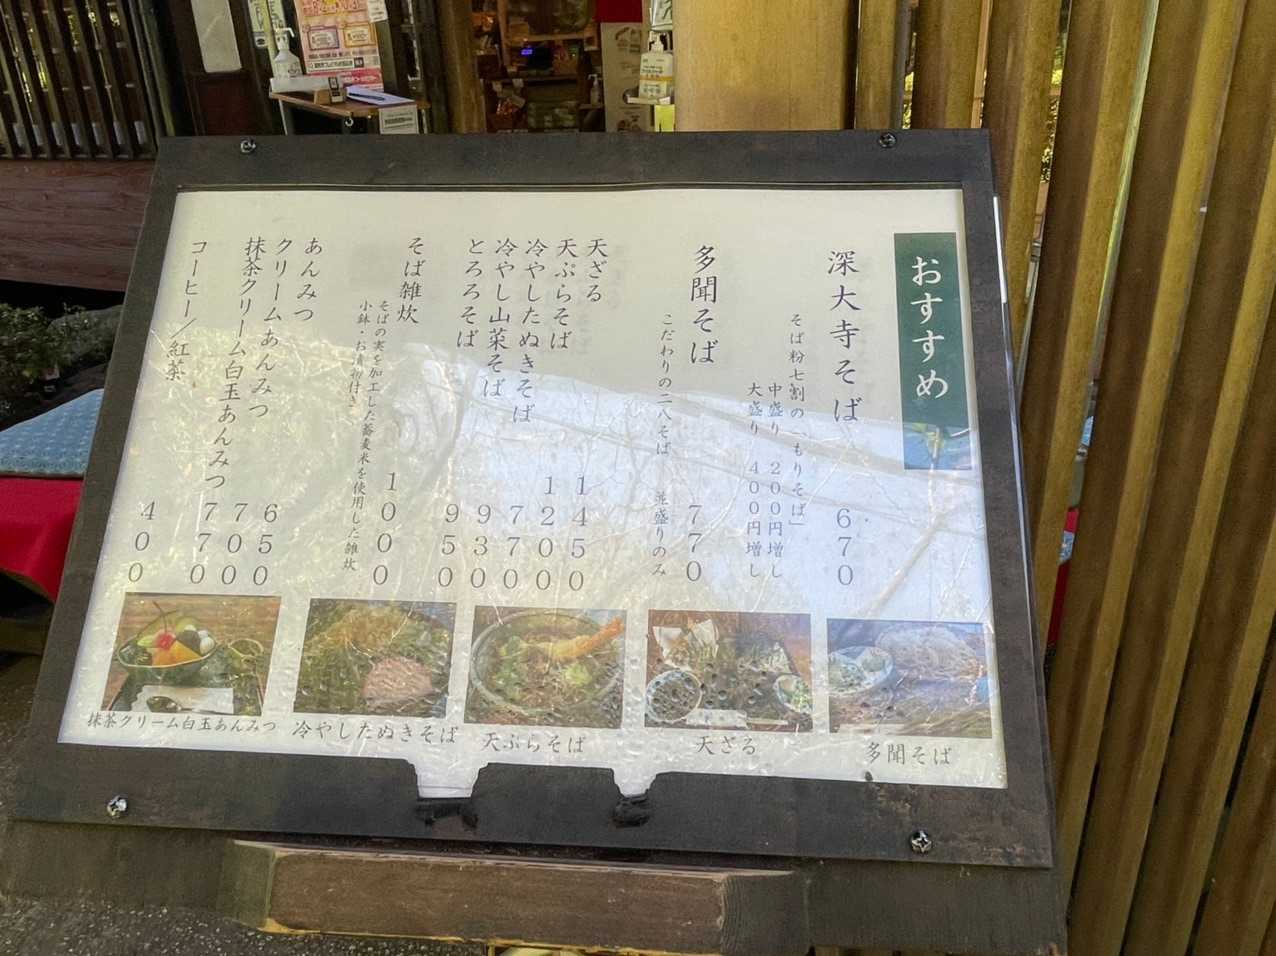 おすすめ
深大寺そば 670
そば粉七割の「もりそば」
中盛り 200円増し
大盛り 400円増し
多聞そば 770
こだわりの二八そば 並盛りのみ
天ざる 1450
天ぷらそば 1200
冷やしたぬきそば 770
冷やし山菜そば 930
とろろそば 950
そば雑炊 1000
そばの実を加工した蕎麦米を使用した雑炊
小鉢・お漬物付き
あんみつ 650
クリームあんみつ 700
抹茶クリーム白玉あんみつ 770
コーヒー/紅茶 400
多聞そば
天ざる
天ぷらそば
冷やしたぬきそば
抹茶クリーム白玉あんみつ